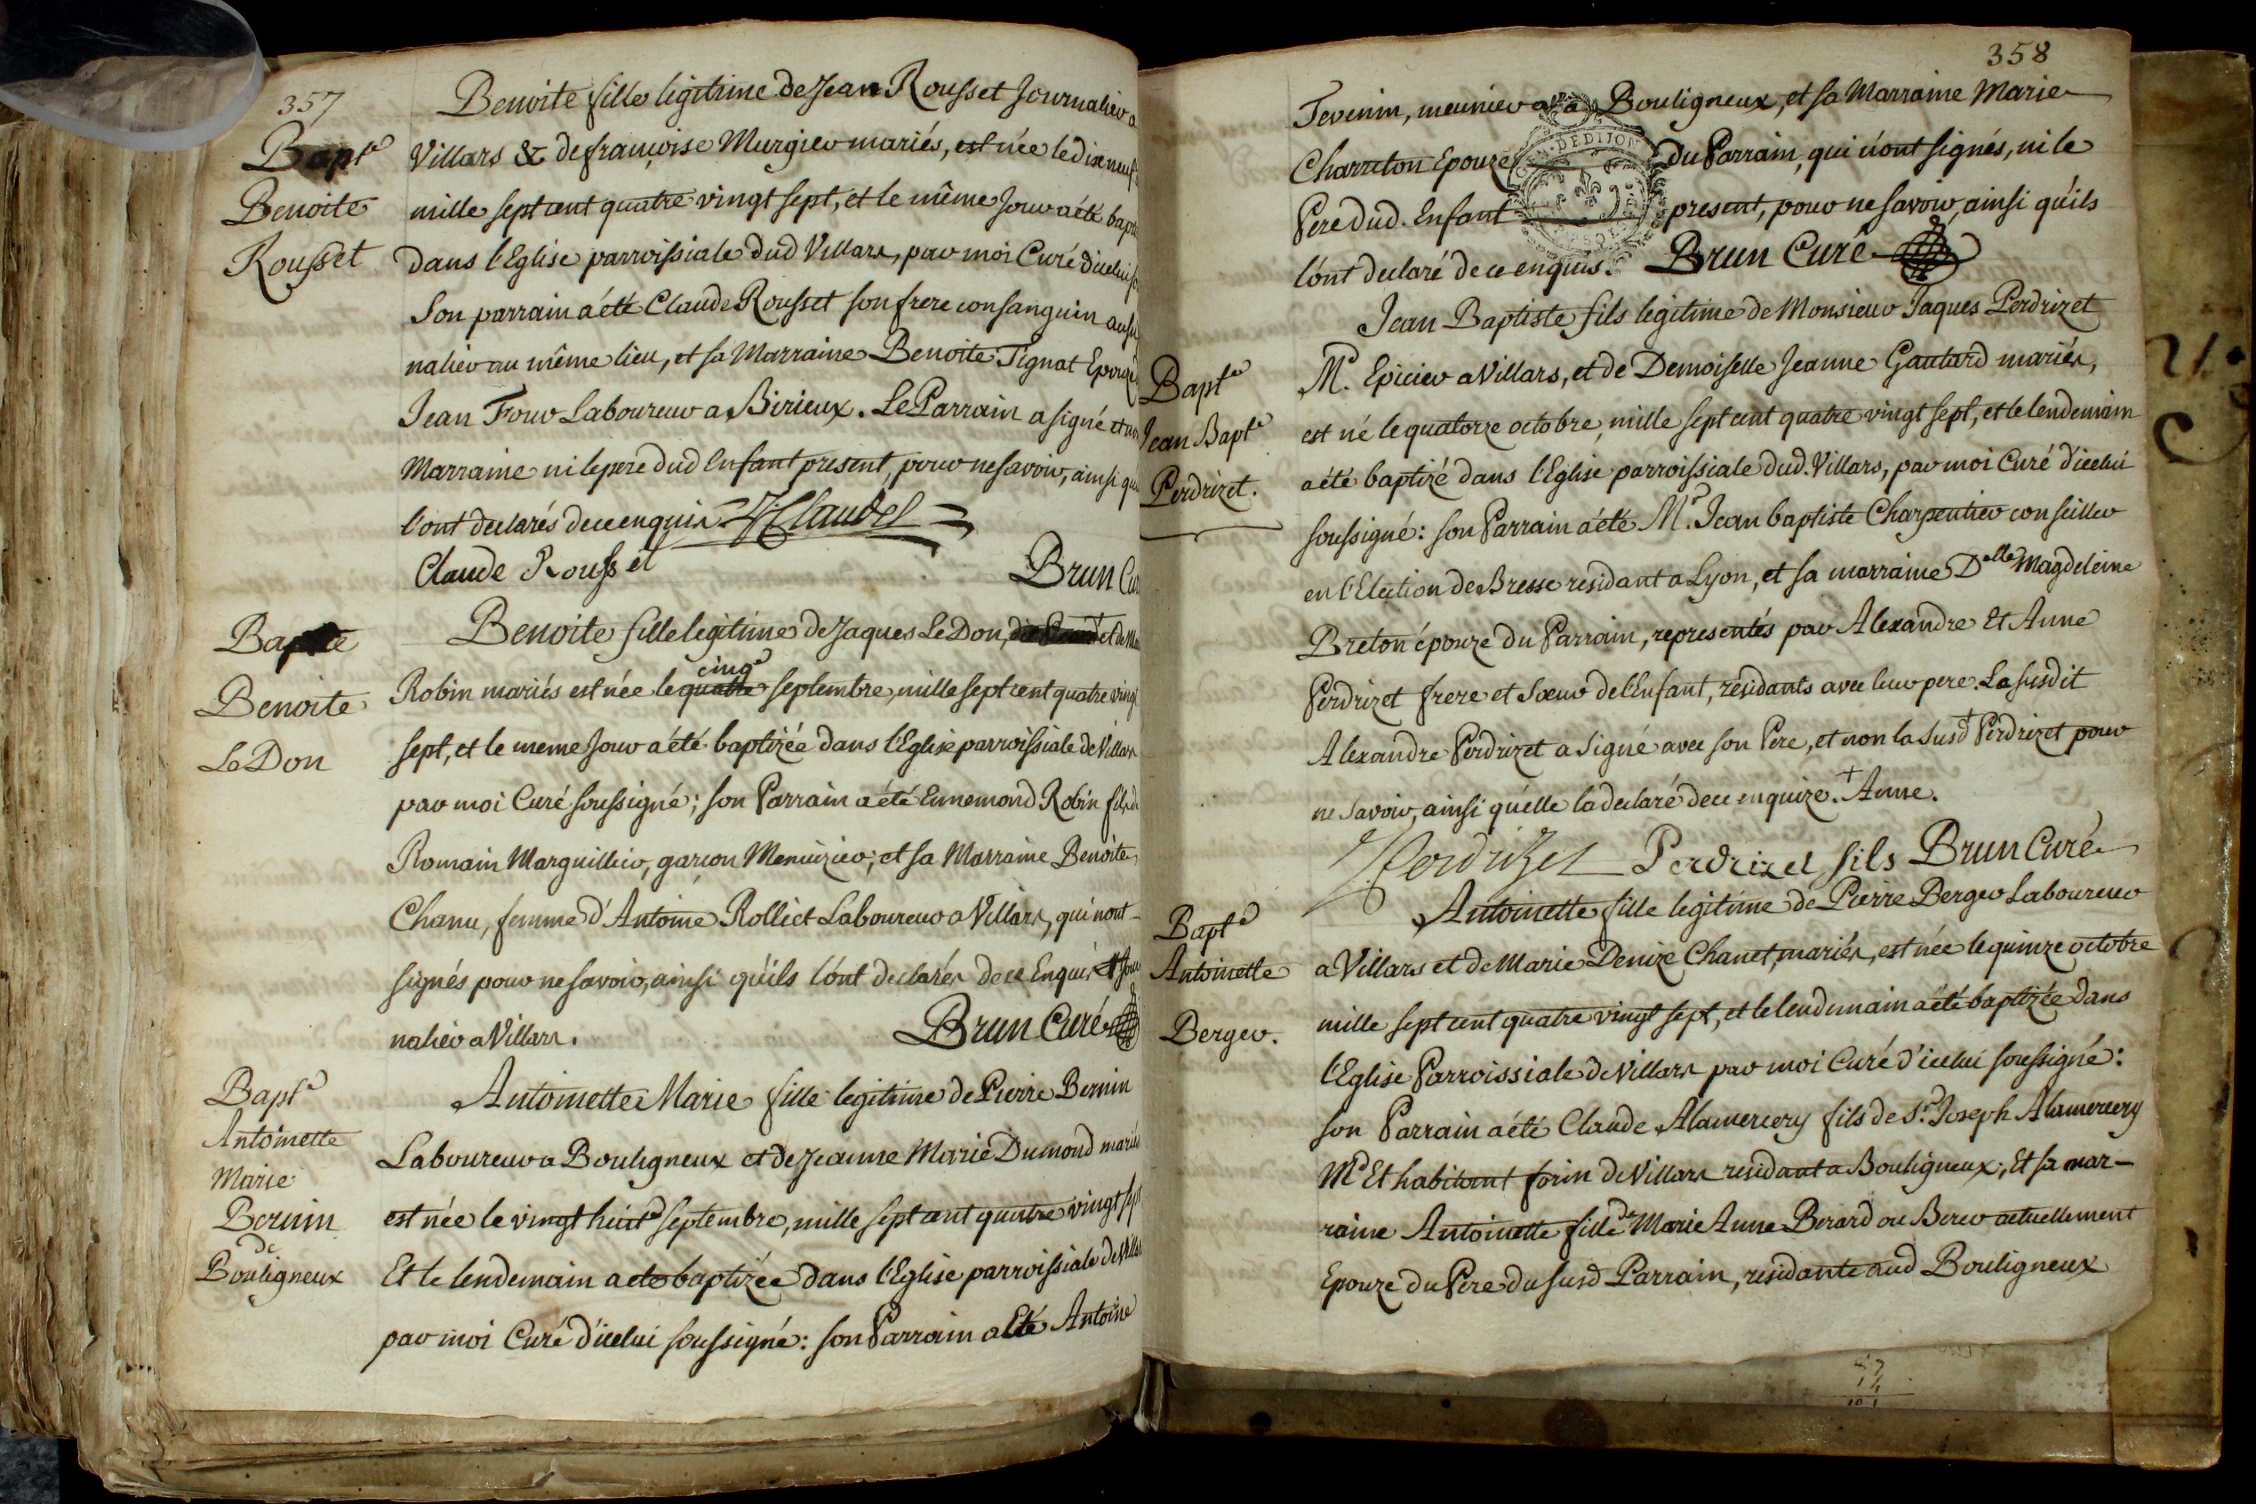 357
Bapt.e
Benoite
Rousset
Benoite fille legitime de Jean Rousset Journalier a
Villars & de françoise Murgier mariés, est née le dix neuf
mille sept cent quatre vingt sept, et le même Jour a été bapt
dans l'Eglise parroissiale dud Villars, par moi Curé d'icelui
Son parrain a été Claude Rousset son frere consanguin aussi
nalier au même lieu, et sa Marraine Benoite Tignat Epouze
Jean Four Laboureur a Birieux. Le Parrain a signé et non
Marraine ni le pere dud Enfant present, pour ne savoir, ainsi qu
l'ont declarés de ce enquis
Claude Rousset
Brun Cu
Bapte
Benoite
Le Don
Benoite fille legitime de Jaques Le Don, et de
cinq
Robin mariés est née le quatre septembre, mille sept cent quatre vingt
sept, et le meme Jour a été baptizée dans l'Eglise parroissiale de Villars
par moi Curé soussigné; son Parrain a été Ennemond Robin fils de
Romain Marguillier, garçon Menuizier; et sa Marraine Benoite
Chanu, femme d'Antoine Rolliet Laboureur a Villars, qui n'ont
signés pour ne savoir, ainsi qu'ils l'ont declarés de ce Enquis # Jour
nalier a Villars.
Brun Curé
Bapt.e
Antoinette
Marie
Bernin
de
Bouligneux
Antoinette Marie fille legitime de Pierre Bernin
Laboureur a Bouligneux et de Jeanne Marie Dumond mariés
est née le vingt huit septembre, mille sept cent quatre vingt sept
Et le lendemain a ete baptizée dans l'Eglise parroissiale de Villars
par moi Curé d'icelui soussigné: son Parrain a Eté Antoine
358
Tevenin, meunier a Bouligneux, et sa Marraine Marie
Charreton Epouze du Parrain, qui n'ont signés, ni le
Pere dud. Enfant present, pour ne savoir, ainsi qu'ils
l'ont declaré de ce enquis. Brun Curé
Bapt.e
Jean Bapt.e
Perdrizet.
Jean Baptiste fils legitime de Monsieur Jaques Perdrizet
M.d Epicier a Villars, et de Demoiselle Jeanne Gautard mariés,
est né le quatorze octobre, mille sept cent quatre vingt sept, et le lendemain
a été baptizé dans l'Eglise parroissiale dud. Villars, par moi Curé d'icelui
soussigné: son Parrain a été M.r Jean baptiste Charpentier conseiller
en l'Election de Bresse residant a Lyon, et sa marraine D.elle Magdeleine
Breton épouze du Parrain, representés par Alexandre Et Anne
Perdrizet frere et Sœur de l'Enfant, residants avec leur pere. La susdit
Alexandre Perdrizet a signé avec son Pere, et non la Susd + Perdrizet pour
ne savoir, ainsi qu'elle la declaré de ce enquize. + Anne.
Perdrizet Perdrizet fils Brun Curé
Bapt.e
Antoinette
Berger.
Antoinette fille legitime de Pierre Berger Laboureur
a Villars et de Marie Denize Chanet, mariés, est née le quinze octobre
mille sept cent quatre vingt sept, et le lendemain a été baptizée dans
l'Eglise Parroissiale de Villars par moi Curé d'icelui soussigné:
son Parrain a été Claude Alamercery fils de S.r Joseph Alamercery
M.d Et habitant forin de Villars residant a Bouligneux; Et sa mar-
raine Antoinette fille de Marie Anne Berard ou Berer actuellement
Epouze du Pere du susd Parrain, residante aud Bouligneux